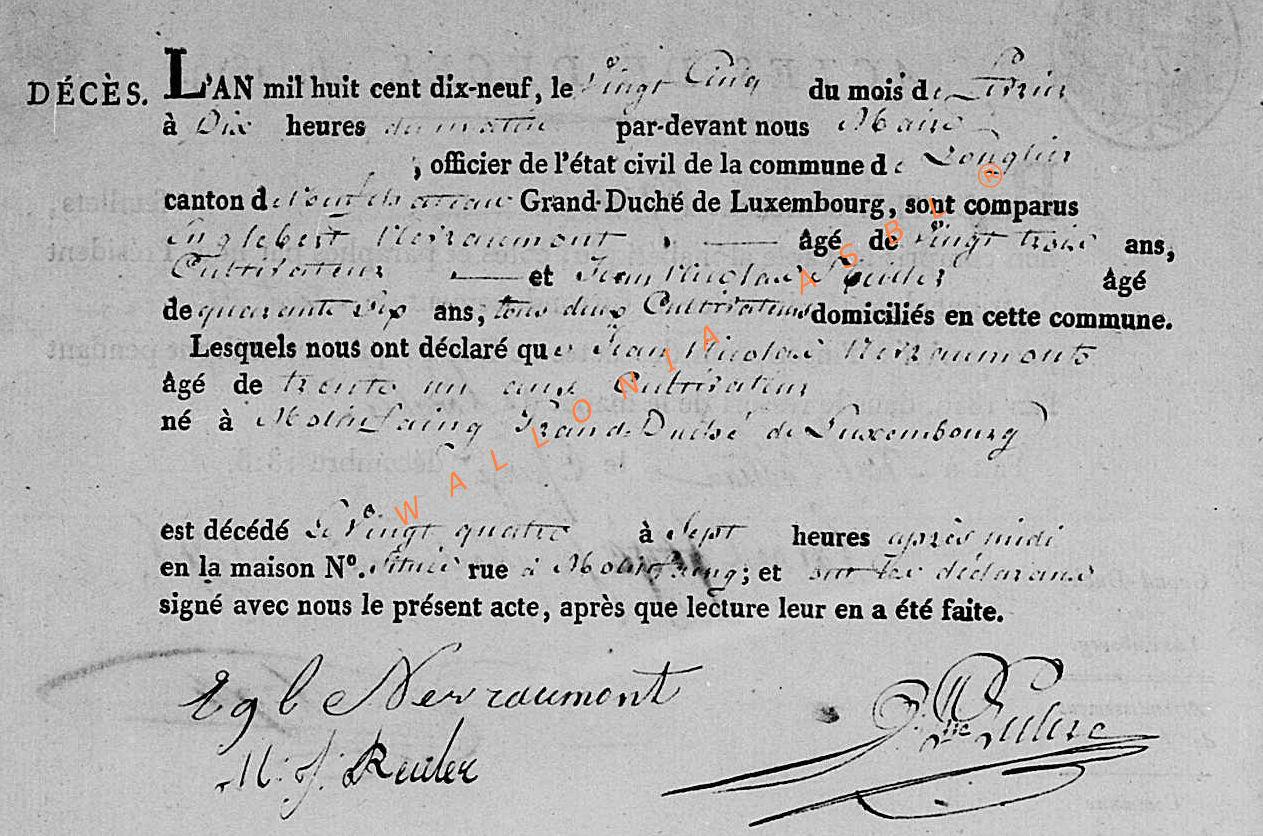 DÉCÈS. L'AN mil huit cent dix-neuf, le vingt Cinq du mois de
à Dix heures du matin par-devant nous Maire
, officier de l'état civil de la commune de Longlier
canton de Neufchateau Grand-Duché de Luxembourg, sont comparus
Englebert Nerraumont âgé de vingt trois ans,
Cultivateur et Jean Nicolas âgé
de quarante Six ans, tous deux Cultivateurs domiciliés en cette commune.
Lesquels nous ont déclaré que Jean Nicolas Nerraumont
âgé de trente un ans Cultivateur
né à Molinfaing Grand-Duché de Luxembourg
est décédé Le vingt quatre à Sept heures après midi
en la maison N°. Située rue à Molinfaing; et ont les déclarans
signé avec nous le présent acte, après que lecture leur en a été faite.
Egl Nerraumont
WALLONIA ASBL ®